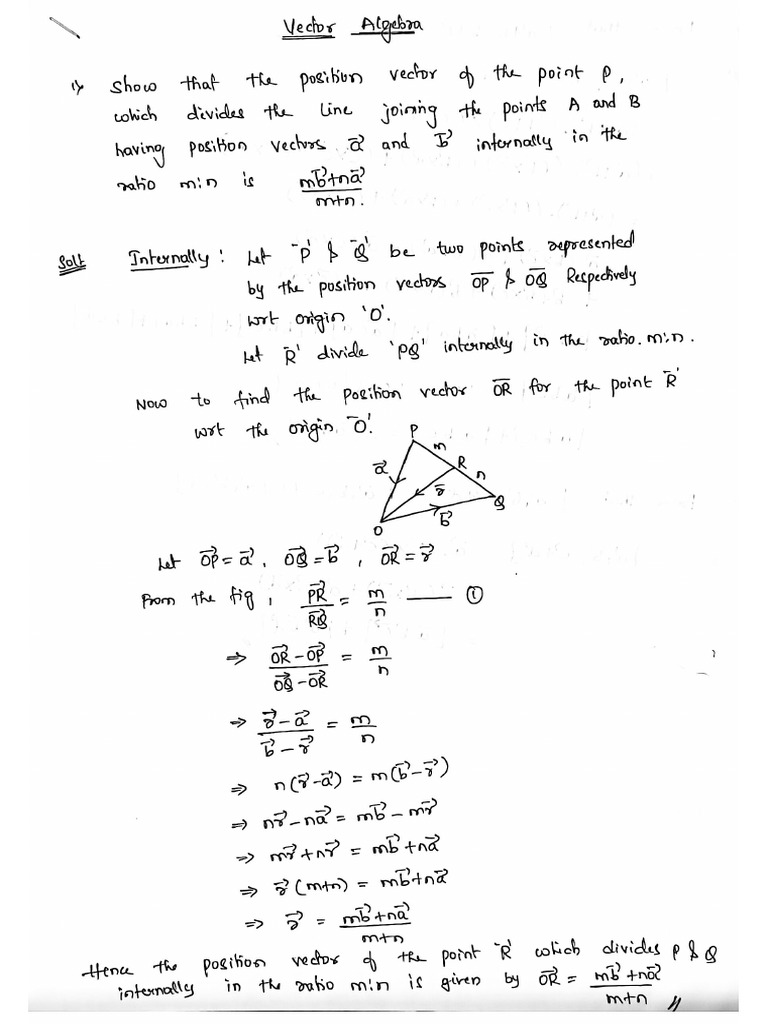 Vector Algebra
1) Show that the position vector of the point P,
which divides the line joining the points A and B
having position vectors a⃗ and b⃗ internally in the
ratio m:n is (mb⃗+na⃗)/(m+n).
Solt Internally: Let 'P' & 'Q' be two points represented
by the position vectors O̅P̅ & O̅Q̅ Respectively
wrt origin 'O'.
Let 'R' divide 'PQ' internally in the ratio m:n.
Now to find the position vector O̅R̅ for the point 'R'
wrt the origin 'O'.
P
m
a⃗
R
n
r̅
Q
b⃗
O
Let OP⃗ = a⃗, OQ⃗ = b⃗, OR⃗ = r⃗
From the fig, PR⃗/RQ⃗ = m/n —— ①
⇒ (OR⃗ - OP⃗)/(OQ⃗ - OR⃗) = m/n
⇒ (r⃗ - a⃗)/(b⃗ - r⃗) = m/n
⇒ n(r⃗ - a⃗) = m(b⃗ - r⃗)
⇒ nr⃗ - na⃗ = mb⃗ - mr⃗
⇒ mr⃗ + nr⃗ = mb⃗ + na⃗
⇒ r⃗(m+n) = mb⃗ + na⃗
⇒ r⃗ = (mb⃗ + na⃗)/(m+n)
Hence the position vector of the point 'R' which divides P & Q
internally in the ratio m:n is given by OR⃗ = (mb⃗ + na⃗)/(m+n) //